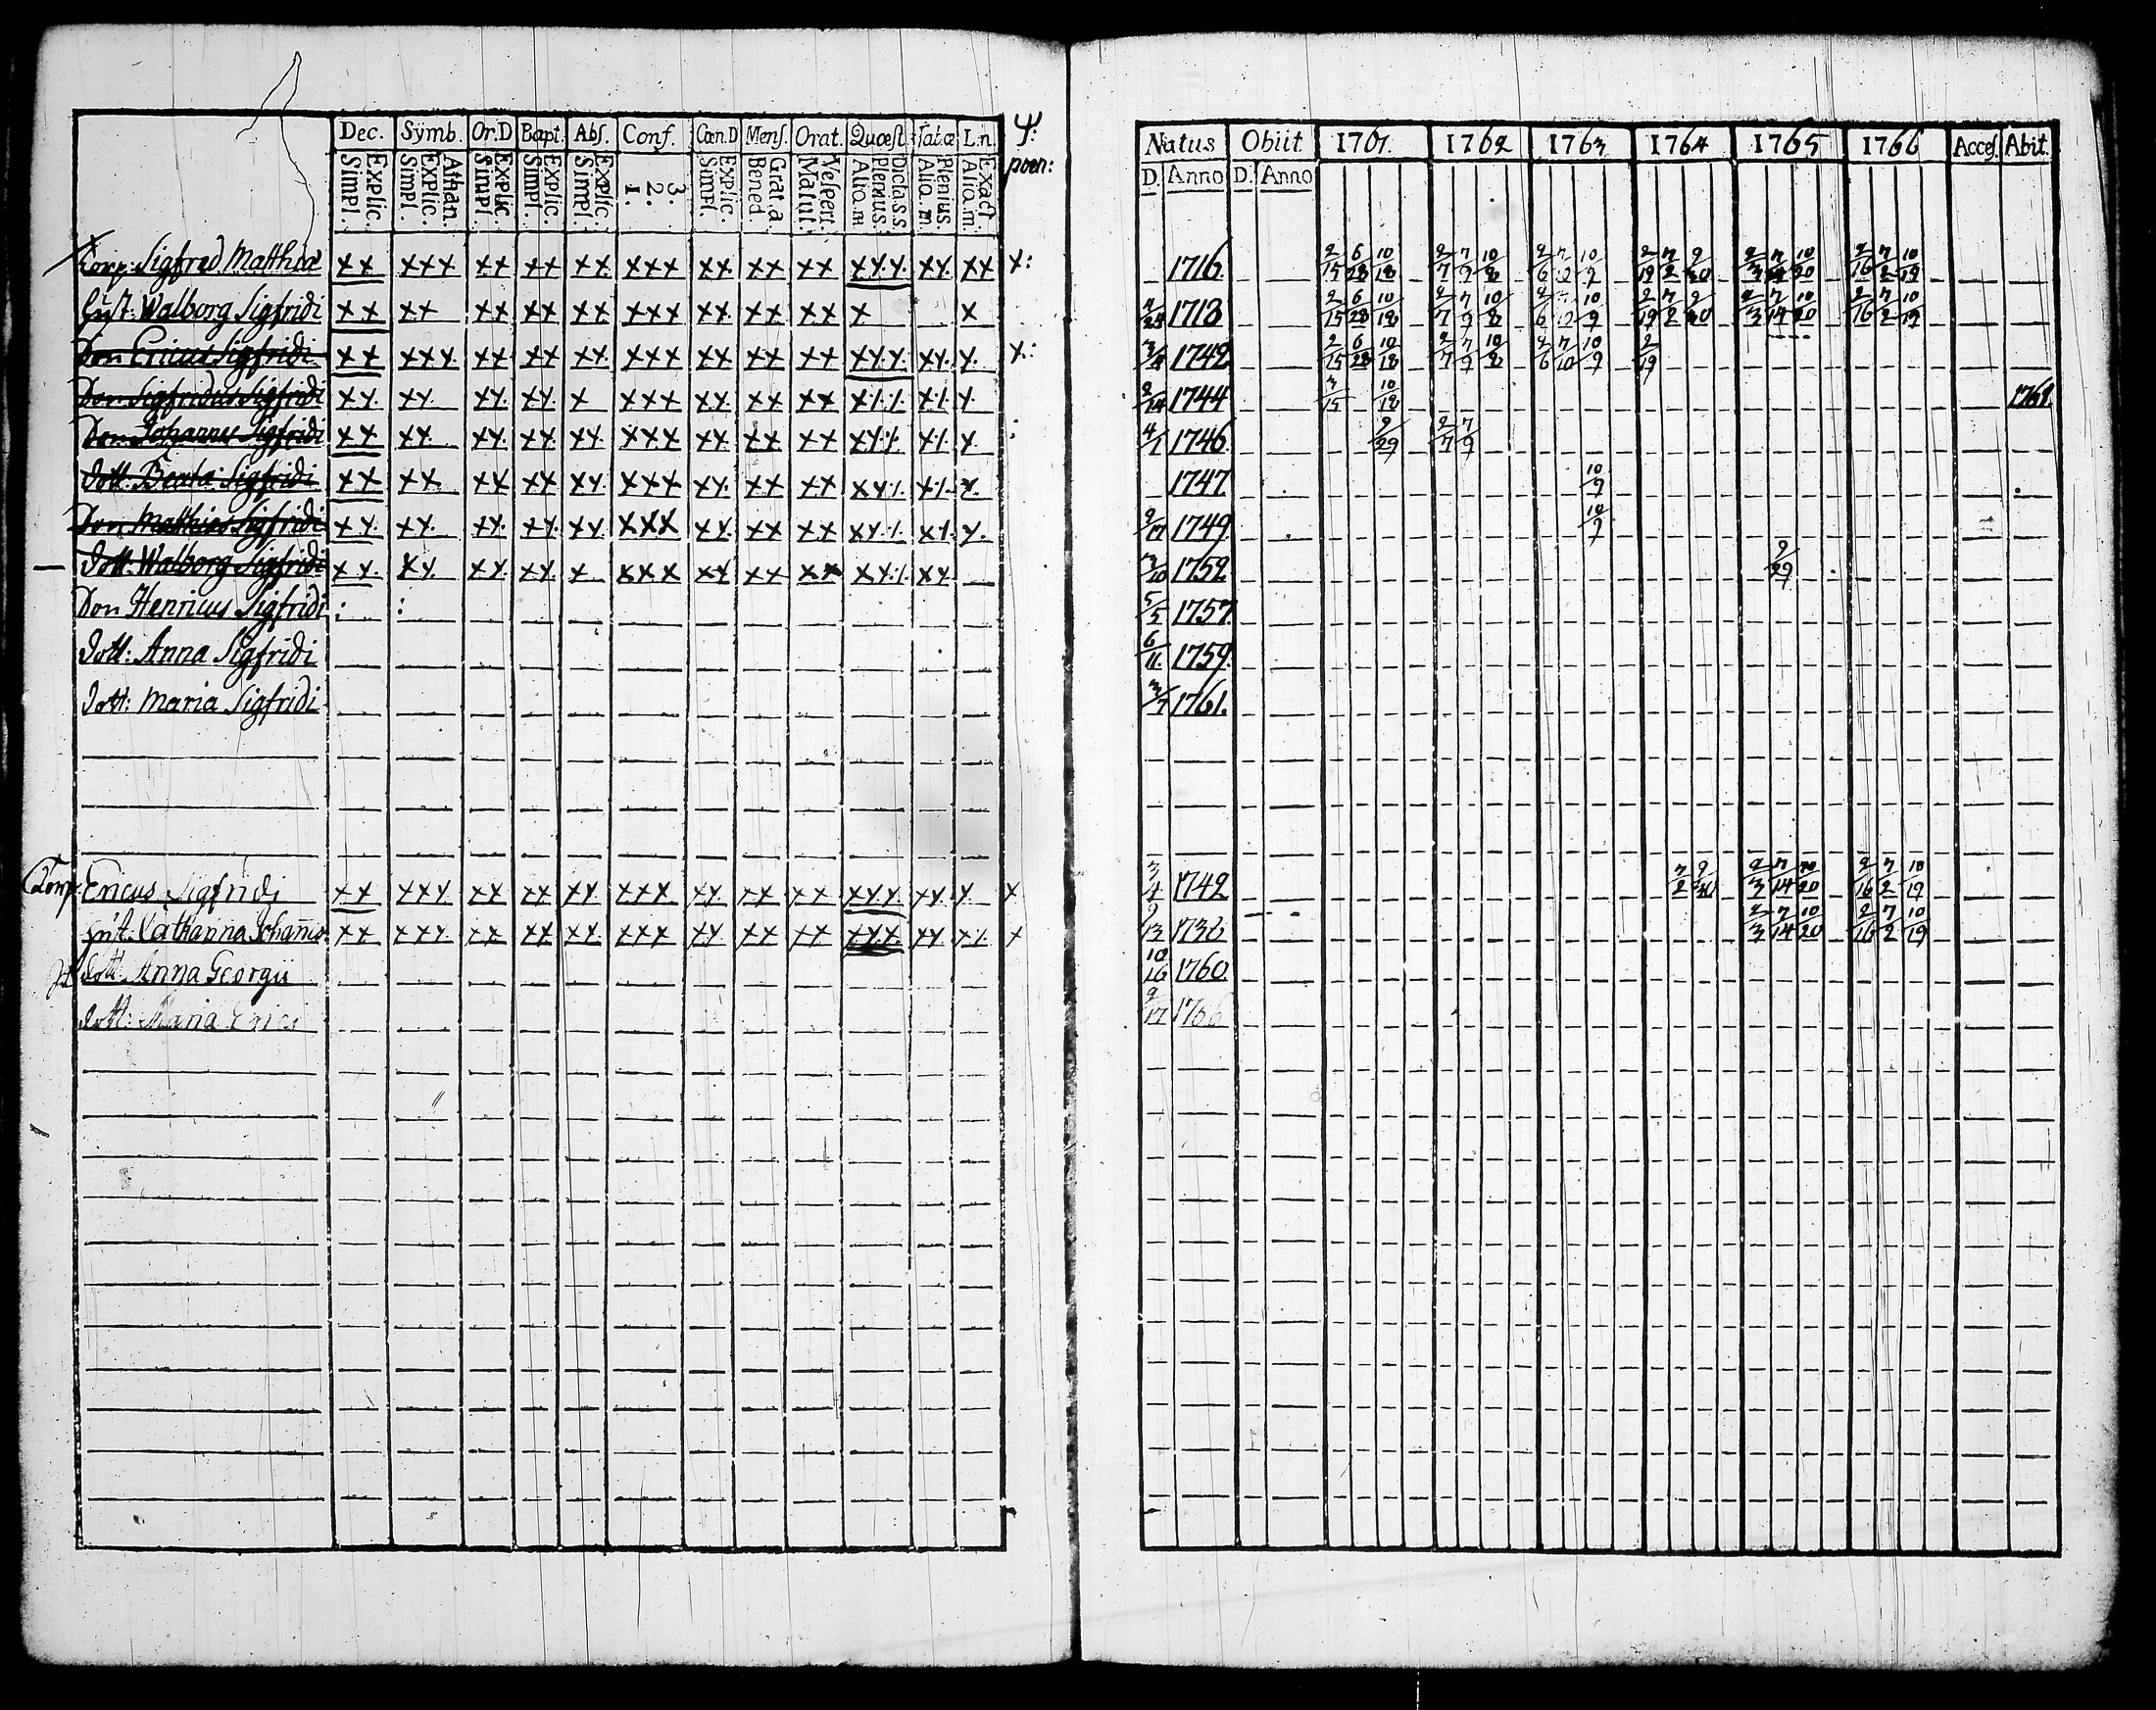 Dec. Sÿmb. Or.D Bapt. Abs. Conf. Cœn.D Mens. Orat. Quæst. Tab.œ L.n. ψ:
Explic. Simpl. Athan. Explic. Simpl. Explic. Simpl. Explic. Simpl. Explic. Simpl. 3. 2. 1. Explic. Simpl. Grat.a Bened. Vespert. Matut. Dicta.s.s. Plenius. Alio.m Plenius. Alio.m. Exact Alio.m. poen:
Corp: Sigfred Matthiæ xx xxx xx xx xx xxx xx xx xx xxx xx xx x:
Hust: Walborg Sigfridi xx xx xx xx xx xxx xx xx xx x x
Don Ericus Sigfridi xx xxx xx xx xx xxx xx xx xx xxx xx x x:
Don Sigfridus Sigfridi xx xx xx xx x xxx xx xx xx x
Don Johannes Sigfridi xx xx xx xx xx xxx xx xx xx x :
dott: Beata Sigfridi xx xx xx xx xx xxx xx xx xx x
Don Mathias Sigfridi xx xx xx xx xx xxx xx xx xx x
dott: Walborg Sigfridi xx xx xx xx x xxx xx xx xx xx
Don Henricus Sigfridi : :
dott: Anna Sigfridi
dott: Maria Sigfridi
Corp: Ericus Sigfridi xx xxx xx xx xx xxx xx xx xx xxx xx x x
Hust: Catharina Johannis xx xxx xx xx xx xxx xx xx xx xxx xx x x
dott: Anna Georgii
dott: Maria Erici
Natus Obiit 1761. 1762 1763 1764 1765 1766 Acces. Abit.
D. Anno D. Anno
1716. 2/15 6/28 10/18 2/7 7/9 10/8 2/6 7/10 10/9 2/19 7/2 9/30 2/3 7/14 10/20 2/16 7/2 10/19
1713 2/15 6/28 10/18 2/7 7/9 10/8 2/6 7/10 10/9 2/19 7/2 9/30 2/3 7/14 10/20 2/16 7/2 10/19
3/4 1742 2/15 6/28 10/18 2/7 7/9 10/8 2/6 7/10 10/9 2/19
2/14 1744 10/18
4/1 1746. 9/29 2/7 7/9
1747. 10/9
9/17 1749. 10/9
3/10 1752. 9/29
5/5 1757.
6/11. 1759.
3/7 1761.
3/4 1742 7/2 9/30 2/3 7/14 10/20 2/16 7/2 10/19
9/13 1736 2/3 7/14 10/20 2/16 7/2 10/19
10/16 1760.
9/17 1766